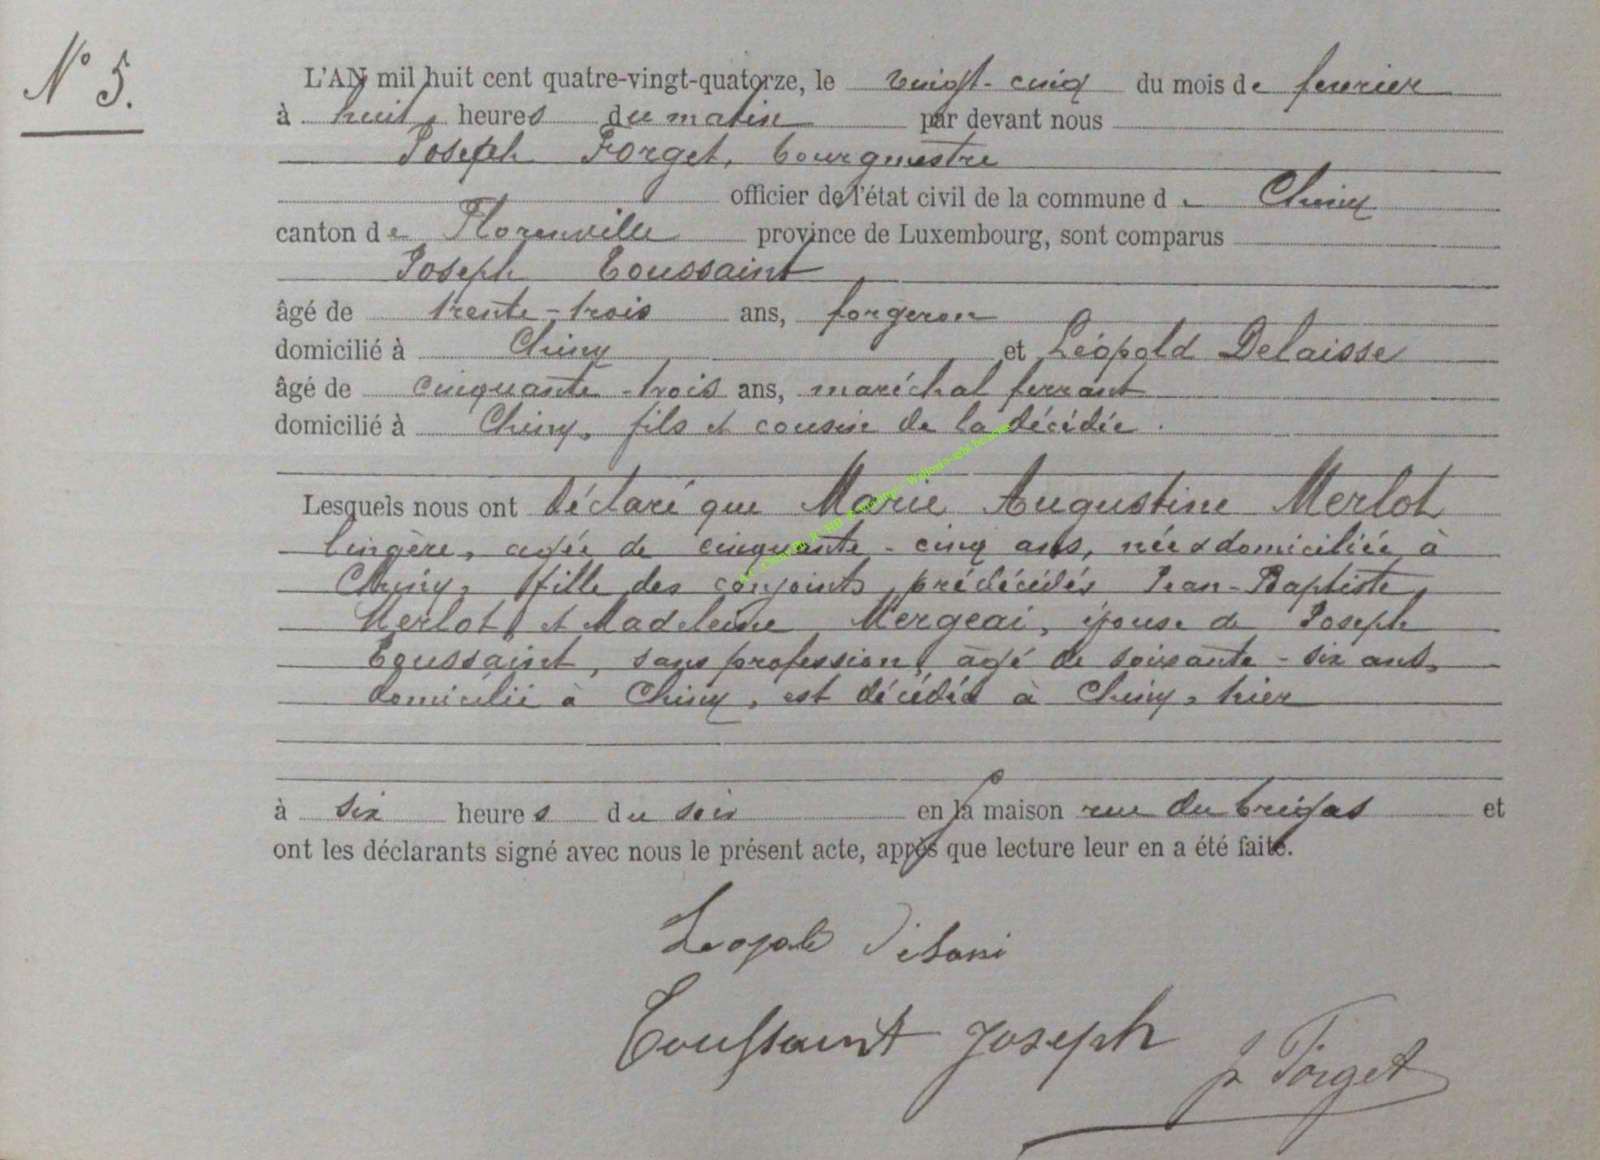 N° 5.
L'AN mil huit cent quatre-vingt-quatorze, le vingt-cinq du mois de fevrier
à huit heures du matin par devant nous
Joseph Forget, bourgmestre
officier de l'état civil de la commune de Chiny
canton de Florenville province de Luxembourg, sont comparus
Joseph Toussaint
âgé de trente-trois ans, forgeron
domicilié à Chiny et Léopold Delaisse
âgé de cinquante-trois ans, maréchal ferrant
domicilié à Chiny, fils et cousin de la décédée.
Lesquels nous ont déclaré que Marie Augustine Merlot
lingère, agée de cinquante-cinq ans, née & domiciliée à
Chiny, fille des conjoints prédécédés Jean-Baptiste
Merlot et Madeleine Mergeai, épouse de Joseph
Toussaint, sans profession, âgé de soixante-six ans,
domicilié à Chiny, est décédée à Chiny, hier
à six heures du soir en la maison rue du et
ont les déclarants signé avec nous le présent acte, après que lecture leur en a été faite.
Leopold
Toussaint Joseph
J Forget